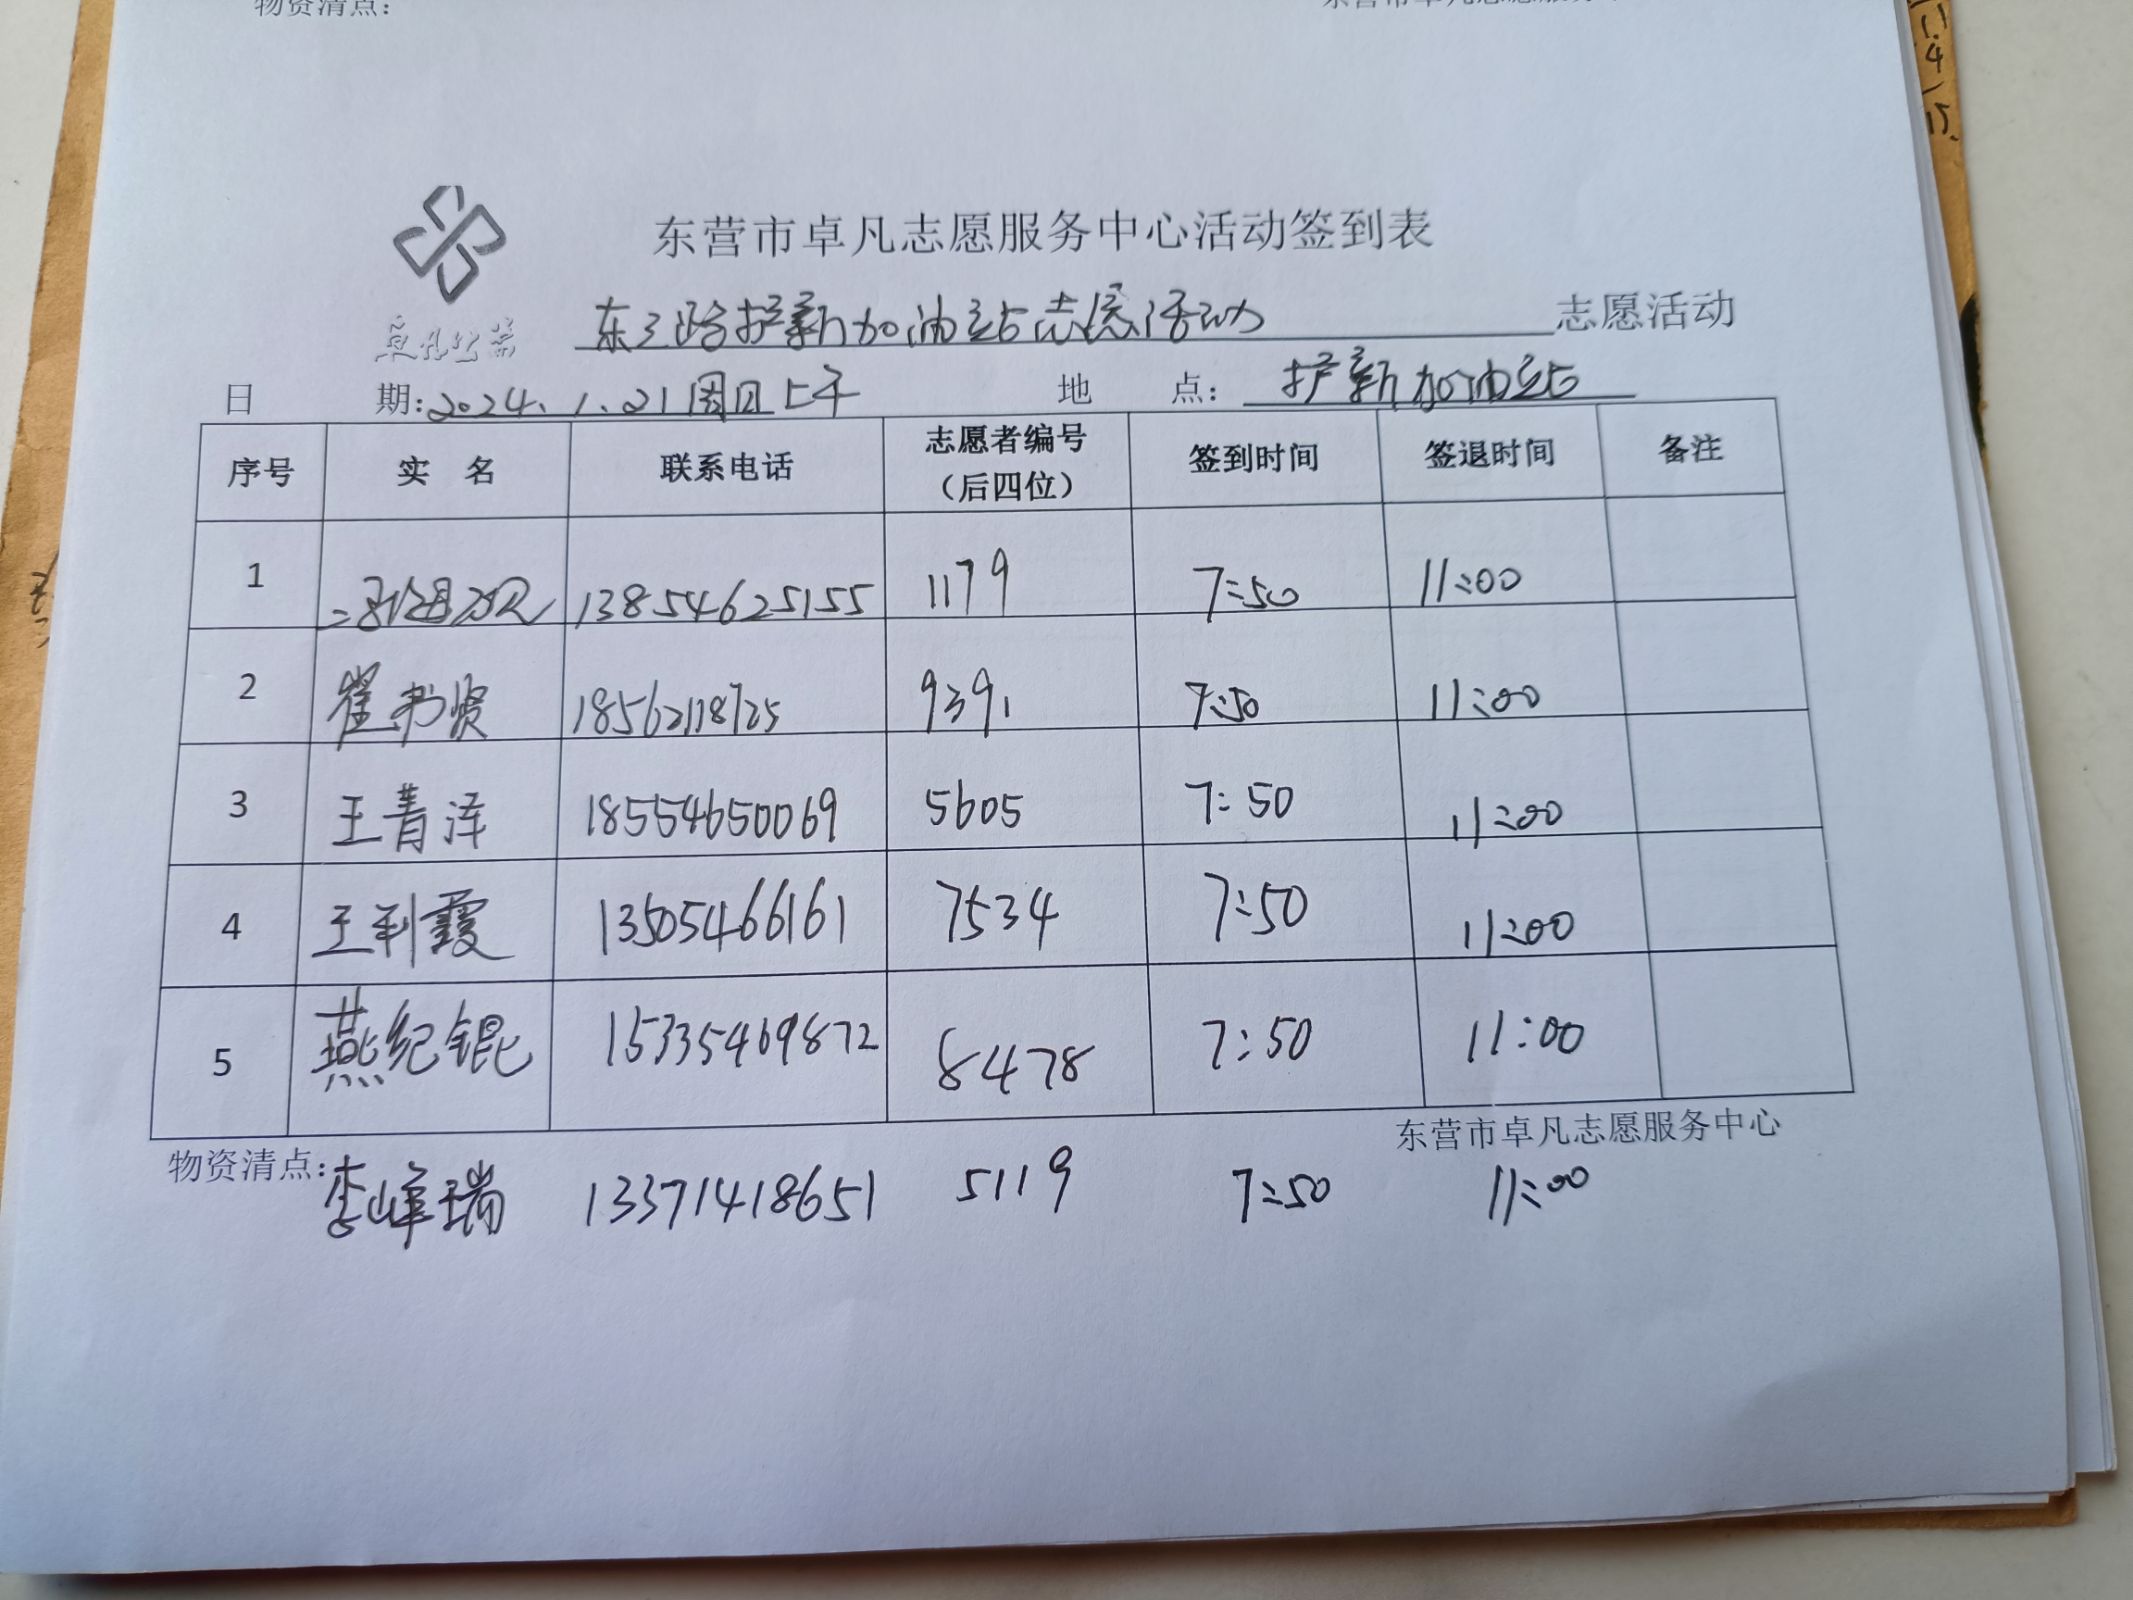 物资清点：
东营市卓凡志愿服务
11.4
15.
东营市卓凡志愿服务中心活动签到表
卓凡公益
东三路护新加油站志愿活动 志愿活动
日 期：2024.1.21周日上午 地 点：护新加油站
序号 实 名 联系电话 志愿者编号（后四位） 签到时间 签退时间 备注
1 13854625155 1179 7:50 11:00
2 崔书贤 18562118725 9391 7:50 11:00
3 王青泽 18554650069 5605 7:50 11:00
4 王利霞 13505466161 7534 7:50 11:00
5 燕纪锟 15335469872 8478 7:50 11:00
东营市卓凡志愿服务中心
物资清点：
李峰瑞 13371418651 5119 7:50 11:00